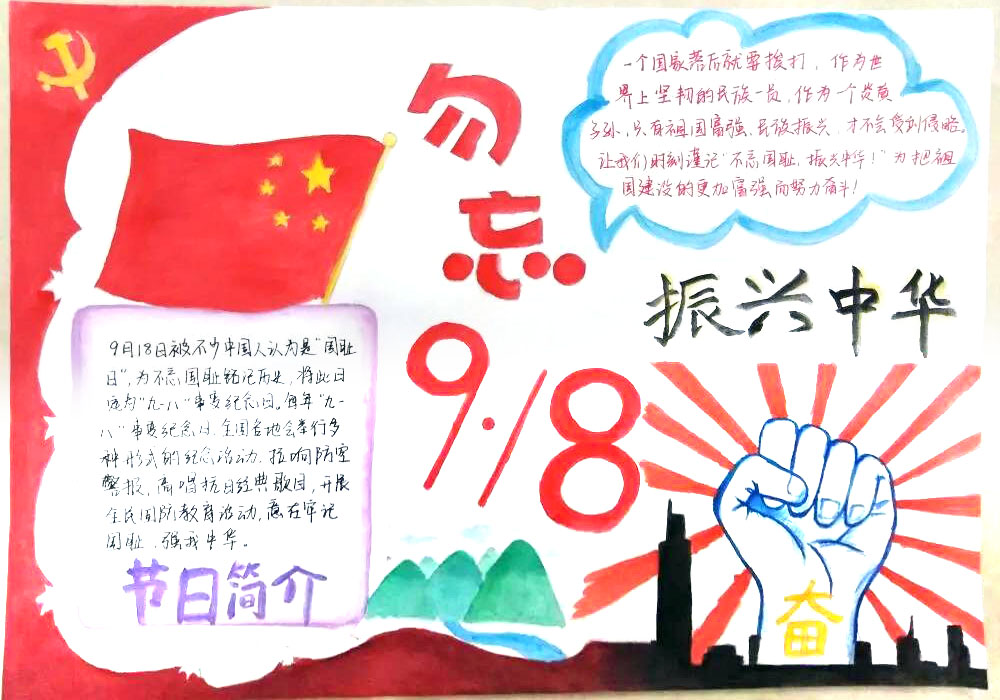 勿忘
9·18
一个国家落后就要挨打，作为世
界上坚韧的民族一员，作为一个炎黄
子孙，只有祖国富强、民族振兴，才不会受到侵略。
让我们时刻谨记“不忘国耻，振兴中华！”为把祖
国建设的更加富强而努力奋斗！
振兴中华
9月18日被不少中国人认为是“国耻
日”，为不忘国耻铭记历史，将此日
定为“九一八”事变纪念日。每年“九一
八”事变纪念日，全国各地会举行多
种形式的纪念活动，拉响防空
警报，高唱抗日经典歌目，开展
全民国防教育活动，意在牢记
国耻、强我中华。
节日简介
奋